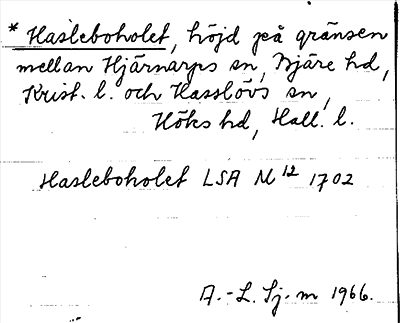 * Hasleboholet, höjd på gränsen
mellan Hjärnarps sn, Bjäre hd,
Krist. l. och Hasslövs sn,
Höks hd, Hall. l.
Hasleboholet LSA M¹² 1702
A.-L. Sj-m 1966.